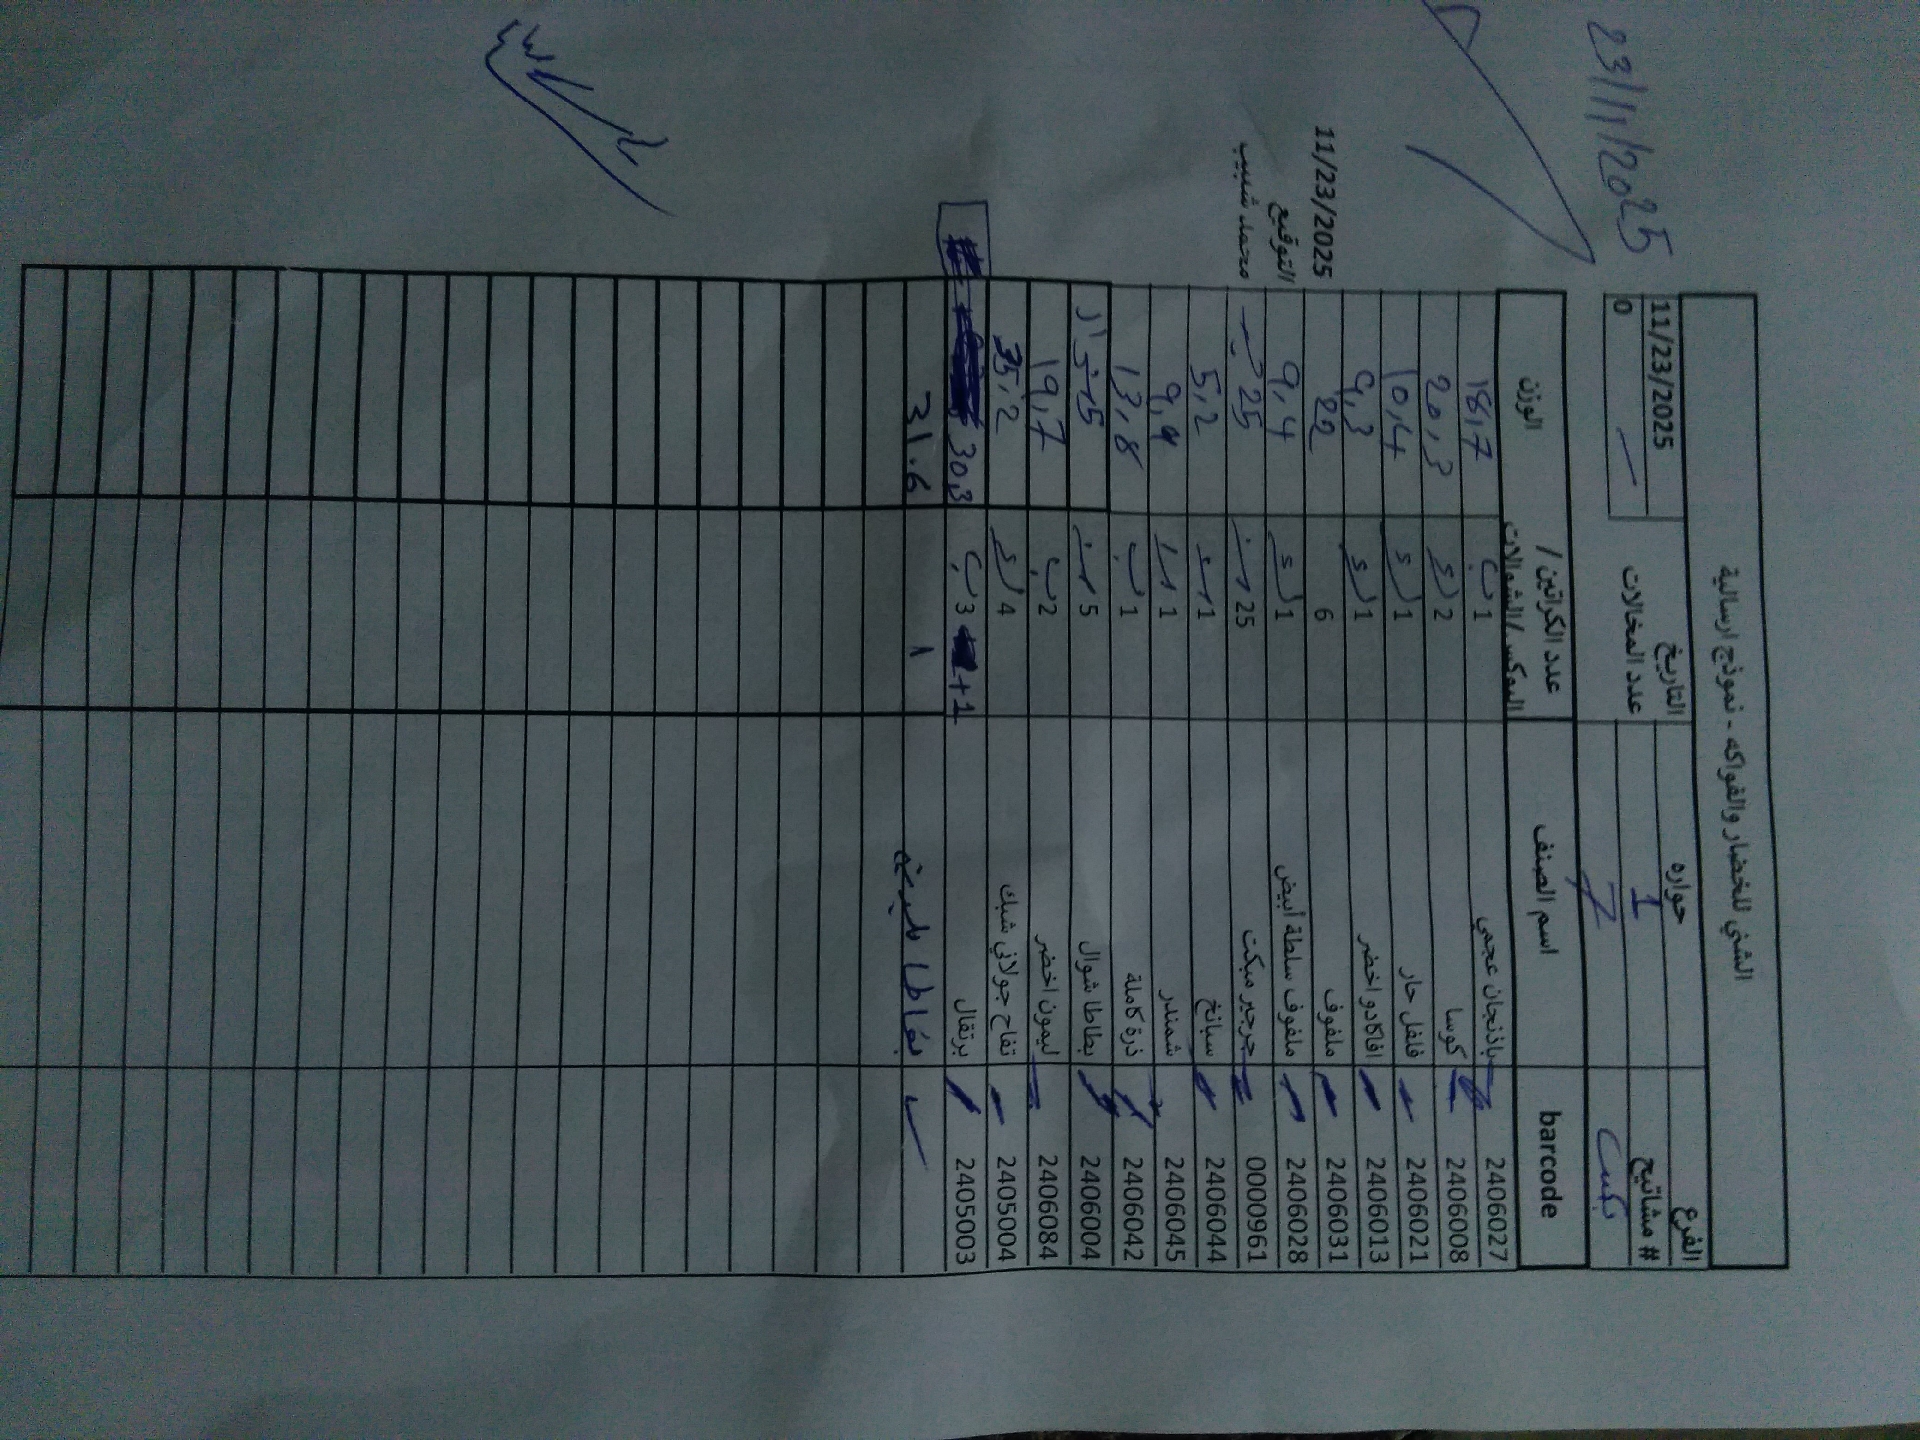 23/11/2025
الشني للخضار والفواكه - نموذج ارسالية
الفرع حواره التاريخ 11/23/2025
# مشاتيح 1 عدد المخالات 0
بكت 7
barcode اسم الصنف عدد الكراتين / البوكس/الشوالات الوزن
2406027 باذنجان عجمي 1 ب 18,7
2406008 كوسا 2 20,3
2406021 فلفل حار 1 10,4
2406013 افاكادو اخضر 1 9,3
2406031 ملفوف 6 22
2406028 ملفوف سلطة أبيض 1 9,4
0000961 جرجير مبكت 25 25
2406044 سبانخ 1 5,2
2406045 شمندر 1 9,4
2406042 ذرة كاملة 1 ب 13,8
2406004 بطاطا شوال 5
2406084 ليمون اخضر 2 ب 19,7
2405004 تفاح جولاني شبك 4 35,2
2405003 برتقال 3 ب +1 30,3
بطاطا 1 31.6
11/23/2025
التوقيع
محمد شبيب